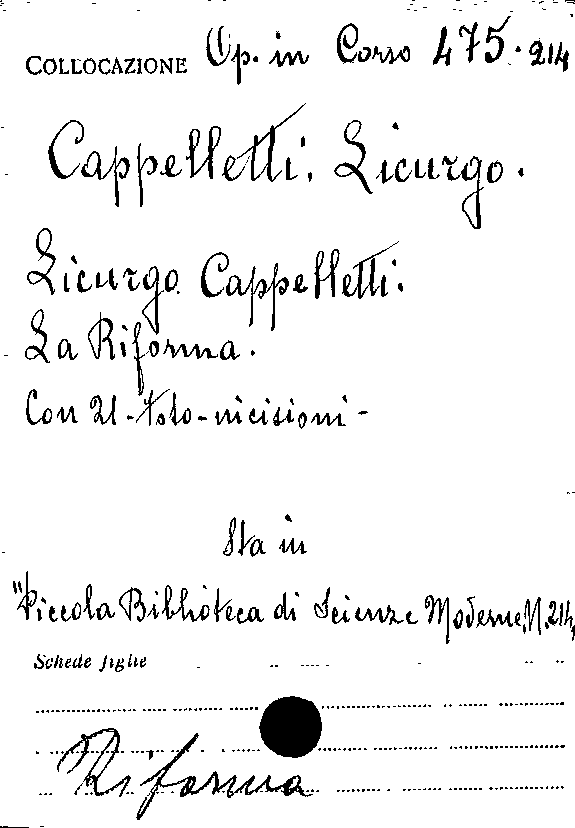 COLLOCAZIONE Op. in Corso 475.214
Cappelletti, Licurgo.
Licurgo Cappelletti.
La Riforma.
Con 21-foto-incisioni-
Sta in
"Piccola Biblioteca di Scienze Moderne, N. 214,
Schede figlie
Riforma